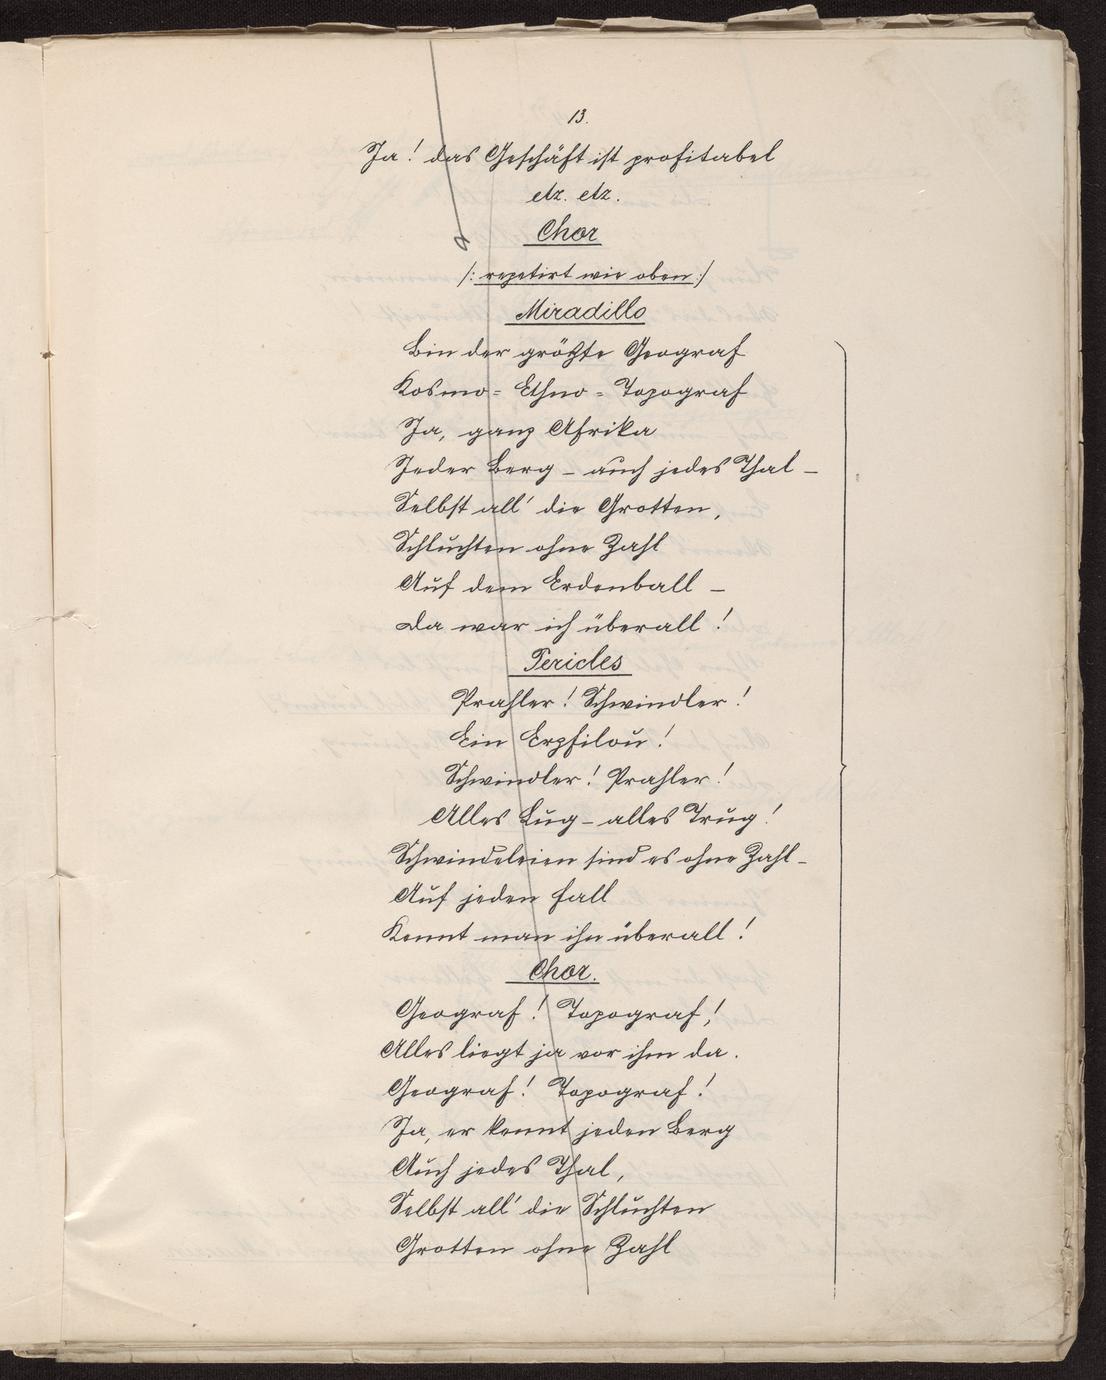 13.
Ja! das Geschäft ist profitabel
etz. etz.
Chor
/: repetirt wie oben :/
Miradillo
Bin der größte Geograf
Kosmo= Ethno= Topograf
Ja, ganz Afrika
Jeder Berg – auch jedes Thal –
Selbst all' die Grotten,
Schluchten ohne Zahl
Auf dem Erdenball –
Da war ich überall!
Pericles
Prahler! Schwindler!
Ein Erzfilou!
Schwindler! Prahler!
Alles Lug – alles Trug!
Schwindeleien sind es ohne Zahl –
Auf jeden Fall
Kennt man ihn überall!
Chor.
Geograf! Topograf!
Alles liegt ja vor ihm da.
Geograf! Topograf!
Ja, er kennt jeden Berg
Auch jedes Thal,
Selbst all' die Schluchten
Grotten ohne Zahl